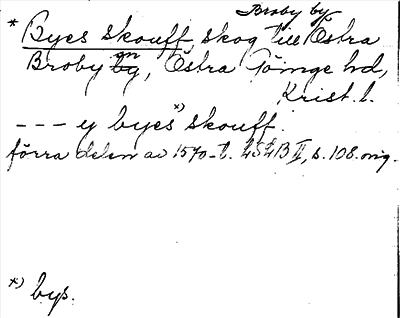 Broby by.
* Byes skouff, skog till Östra
Broby gn, Östra Göinge hd,
Krist. l.
– – – y byes *) skouff.
förra delen av 1570-t. LSLB II, s. 108. orig.
*) bys.